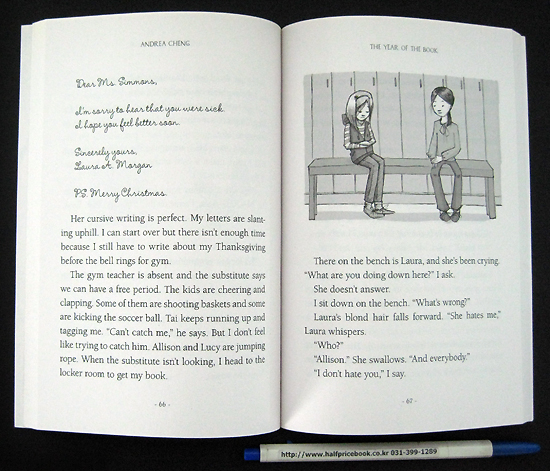 ANDREA CHENG
Dear Ms. Simmons,
I'm sorry to hear that you were sick.
I hope you feel better soon.
Sincerely yours,
Laura A. Morgan
PS. Merry Christmas.
Her cursive writing is perfect. My letters are slant-
ing uphill. I can start over but there isn't enough time
because I still have to write about my Thanksgiving
before the bell rings for gym.
The gym teacher is absent and the substitute says
we can have a free period. The kids are cheering and
clapping. Some of them are shooting baskets and some
are kicking the soccer ball. Tai keeps running up and
tagging me. "Can't catch me," he says. But I don't feel
like trying to catch him. Allison and Lucy are jumping
rope. When the substitute isn't looking, I head to the
locker room to get my book.
- 66 -
THE YEAR OF THE BOOK
There on the bench is Laura, and she's been crying.
"What are you doing down here?" I ask.
She doesn't answer.
I sit down on the bench. "What's wrong?"
Laura's blond hair falls forward. "She hates me,"
Laura whispers.
"Who?"
"Allison." She swallows. "And everybody."
"I don't hate you," I say.
- 67 -
http://www.halfpricebook.co.kr 031-399-1289